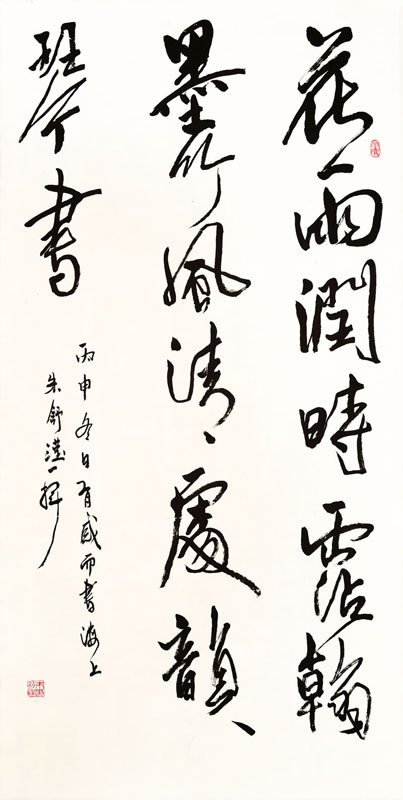 花雨潤時霑翰
墨竹風清處韻
琴書
丙申冬日有感而書海上
朱舒